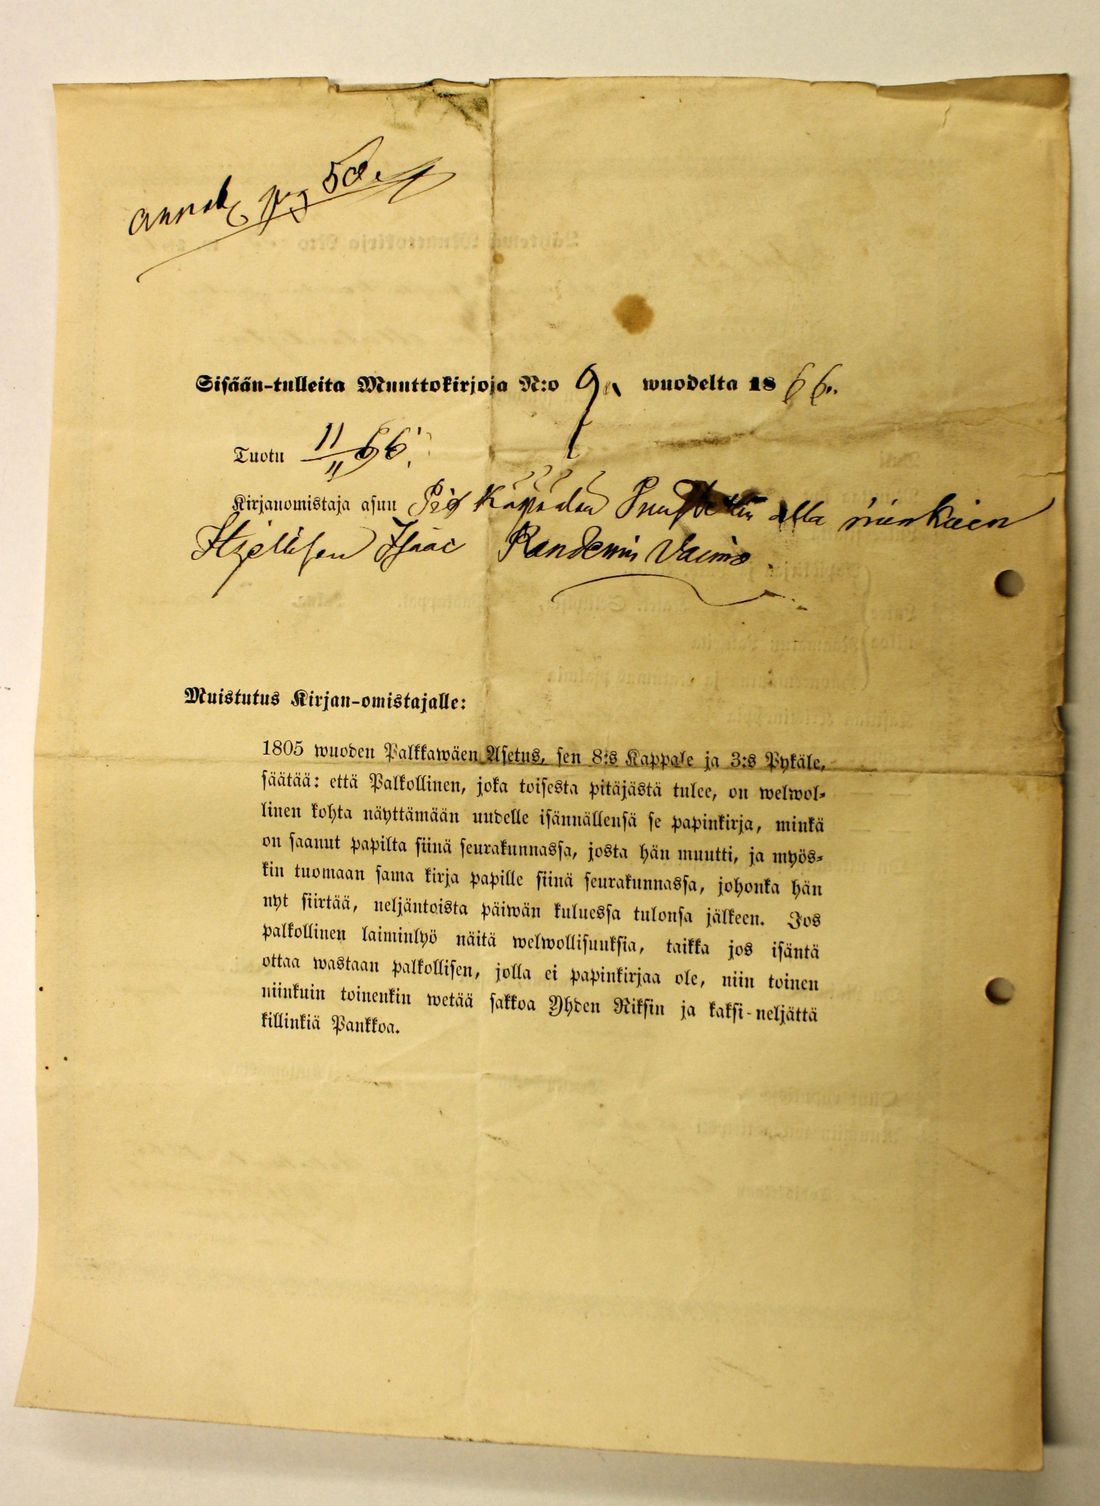 pag 50.
Sisään-tulleita Muuttokirjoja N:o 9 wuodelta 1866.
Tuotu 11/11 66.
Kirjanomistaja asuu
Isaac Vaimo
Muistutus Kirjan-omistajalle:
1805 wuoden Palkkawäen Asetus, sen 8:s Kappale ja 3:s Pykäle,
säätää: että Palkollinen, joka toisesta pitäjästä tulee, on welwol-
linen kohta näyttämään uudelle isännällensä se papinkirja, minkä
on saanut papilta siinä seurakunnassa, josta hän muutti, ja myös-
kin tuomaan sama kirja papille siinä seurakunnassa, johonka hän
nyt siirtää, neljäntoista päiwän kuluessa tulonsa jälkeen. Jos
palkollinen laiminlyö näitä welwollisuuksia, taikka jos isäntä
ottaa wastaan palkollisen, jolla ei papinkirjaa ole, niin toinen
niinkuin toinenkin wetää sakkoa Yhden Riksin ja kaksi-neljättä
killinkiä Pankkoa.